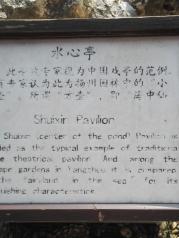 水心亭
此亭被专家视为中国戏亭的范例
专家认为此为扬州园林中的“小
Shuixin Pavilion
Shuixin (center of the pond) Pavilion is
ded as the typical example of traditional
theatrical pavilion. And among the
ape gardens in Yangzhou it is compared
the "fairyland in the sea" for its
uishing characteristics.